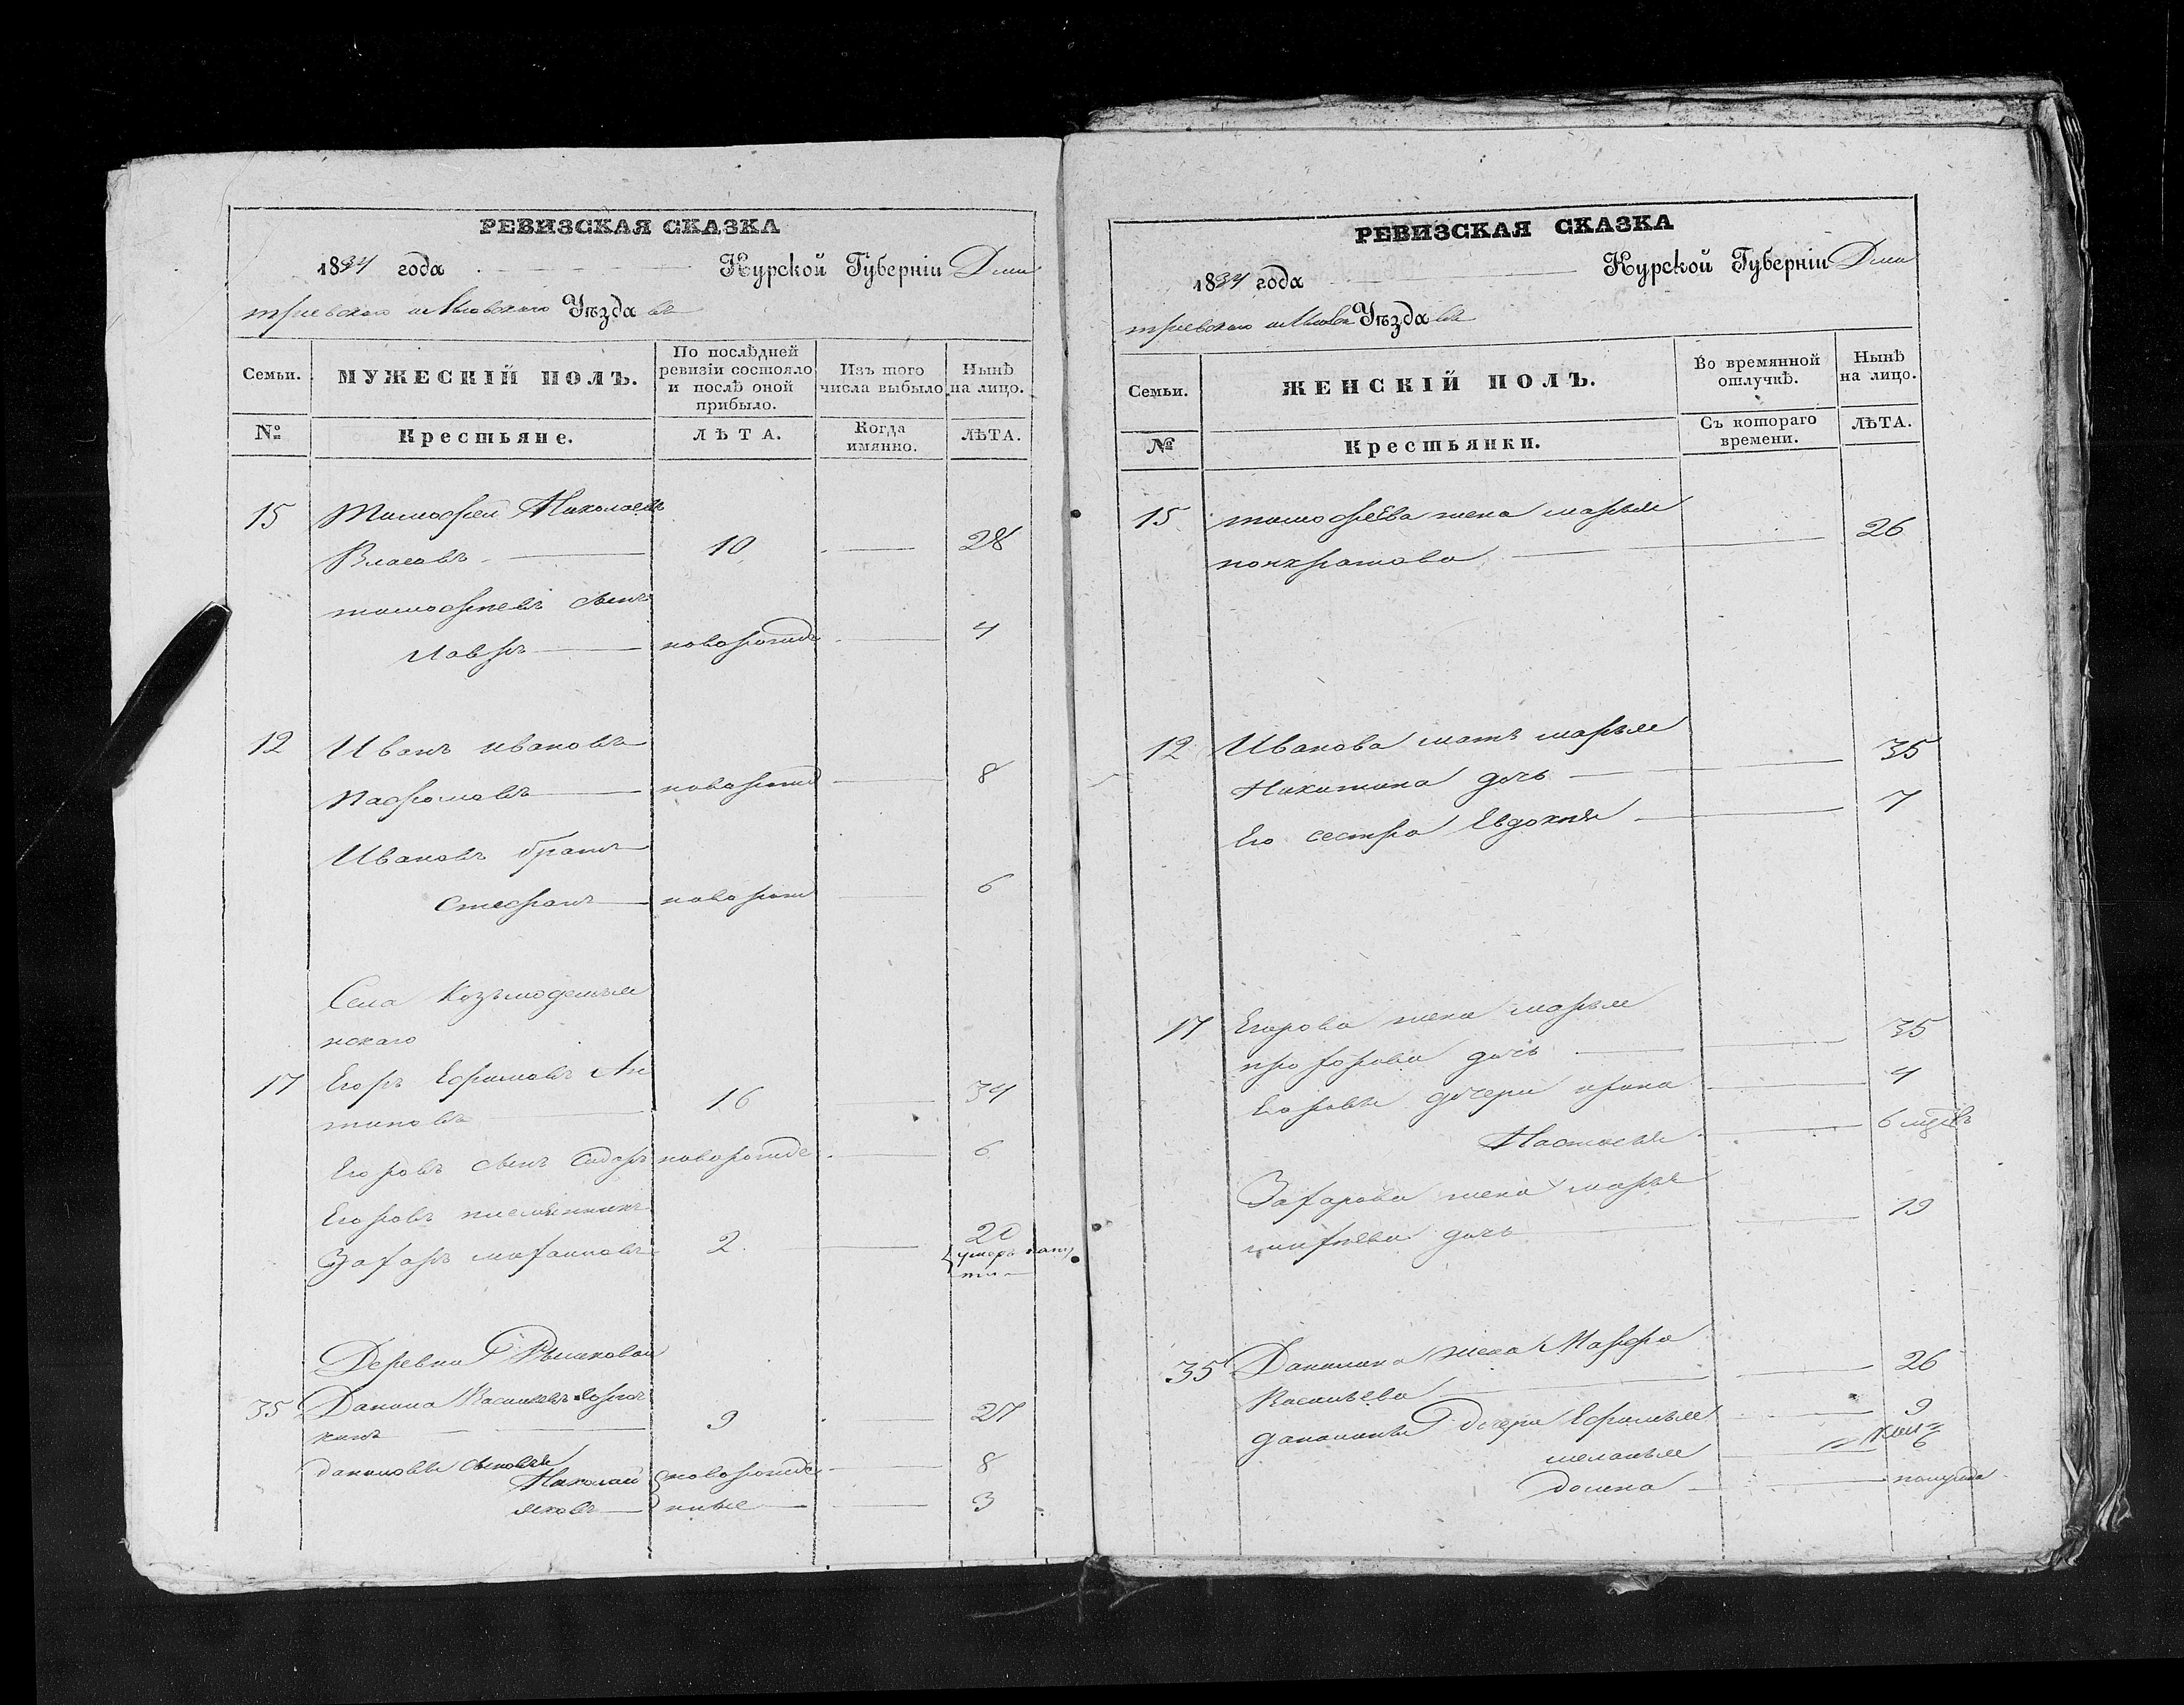 РЕВИЗСКАЯ СКАЗКА
1834 года Курской Губерніи Дми
тріевскаго и Льговскаго Уѣзда въ
Семьи.
МУЖЕСКІЙ ПОЛЪ.
По послѣдней
ревизіи состояло
и послѣ оной
прибыло.
Изъ того
числа выбыло
Нынѣ
на лицо.
№
Крестьяне.
ЛѢТА.
Когда
имянно.
ЛѢТА.
15 Тимофей Николаевъ
Власовъ 10 28
тимофеевъ сынъ
Лавръ новорожде 4
12 Иванъ ивановъ
Пафомовъ новорожд 8
Ивановъ братъ
Стефанъ новорож 6
Села Козьмодемья
нскаго
17 Егоръ Ефимовъ Ан
типовъ 16 34
Егоровъ сынъ Сидоръ новорожде 6
Егоровъ племянникъ
Захаръ 2 20
умеръ
Деревни
35 Данила Васильевъ
кинъ 9 27
даниловы сыновья
Николай новорожде 8
яковъ нные 3
РЕВИЗСКАЯ СКАЗКА
1834 года Курской Губерніи Дми
тріевскаго Уѣзда въ
Семьи.
ЖЕНСКІЙ ПОЛЪ.
Во времянной
отлучкѣ.
Нынѣ
на лицо.
№
Крестьянки.
Съ котораго
времени.
ЛѢТА.
15 тимофеева жена марья
понкратова 26
12 Иванова мать марья
Никитина дочь 35
Его сестра Евдокия 7
17 Егорова жена марья
прохорова дочь 35
Егоровы дочери ирина 4
Настасья 6
Захарова жена марья
дочь 19
35 Данилина жена Марфа
Васильева 26
данилины дочери Ефимья 9
меланья 6
домна полгода